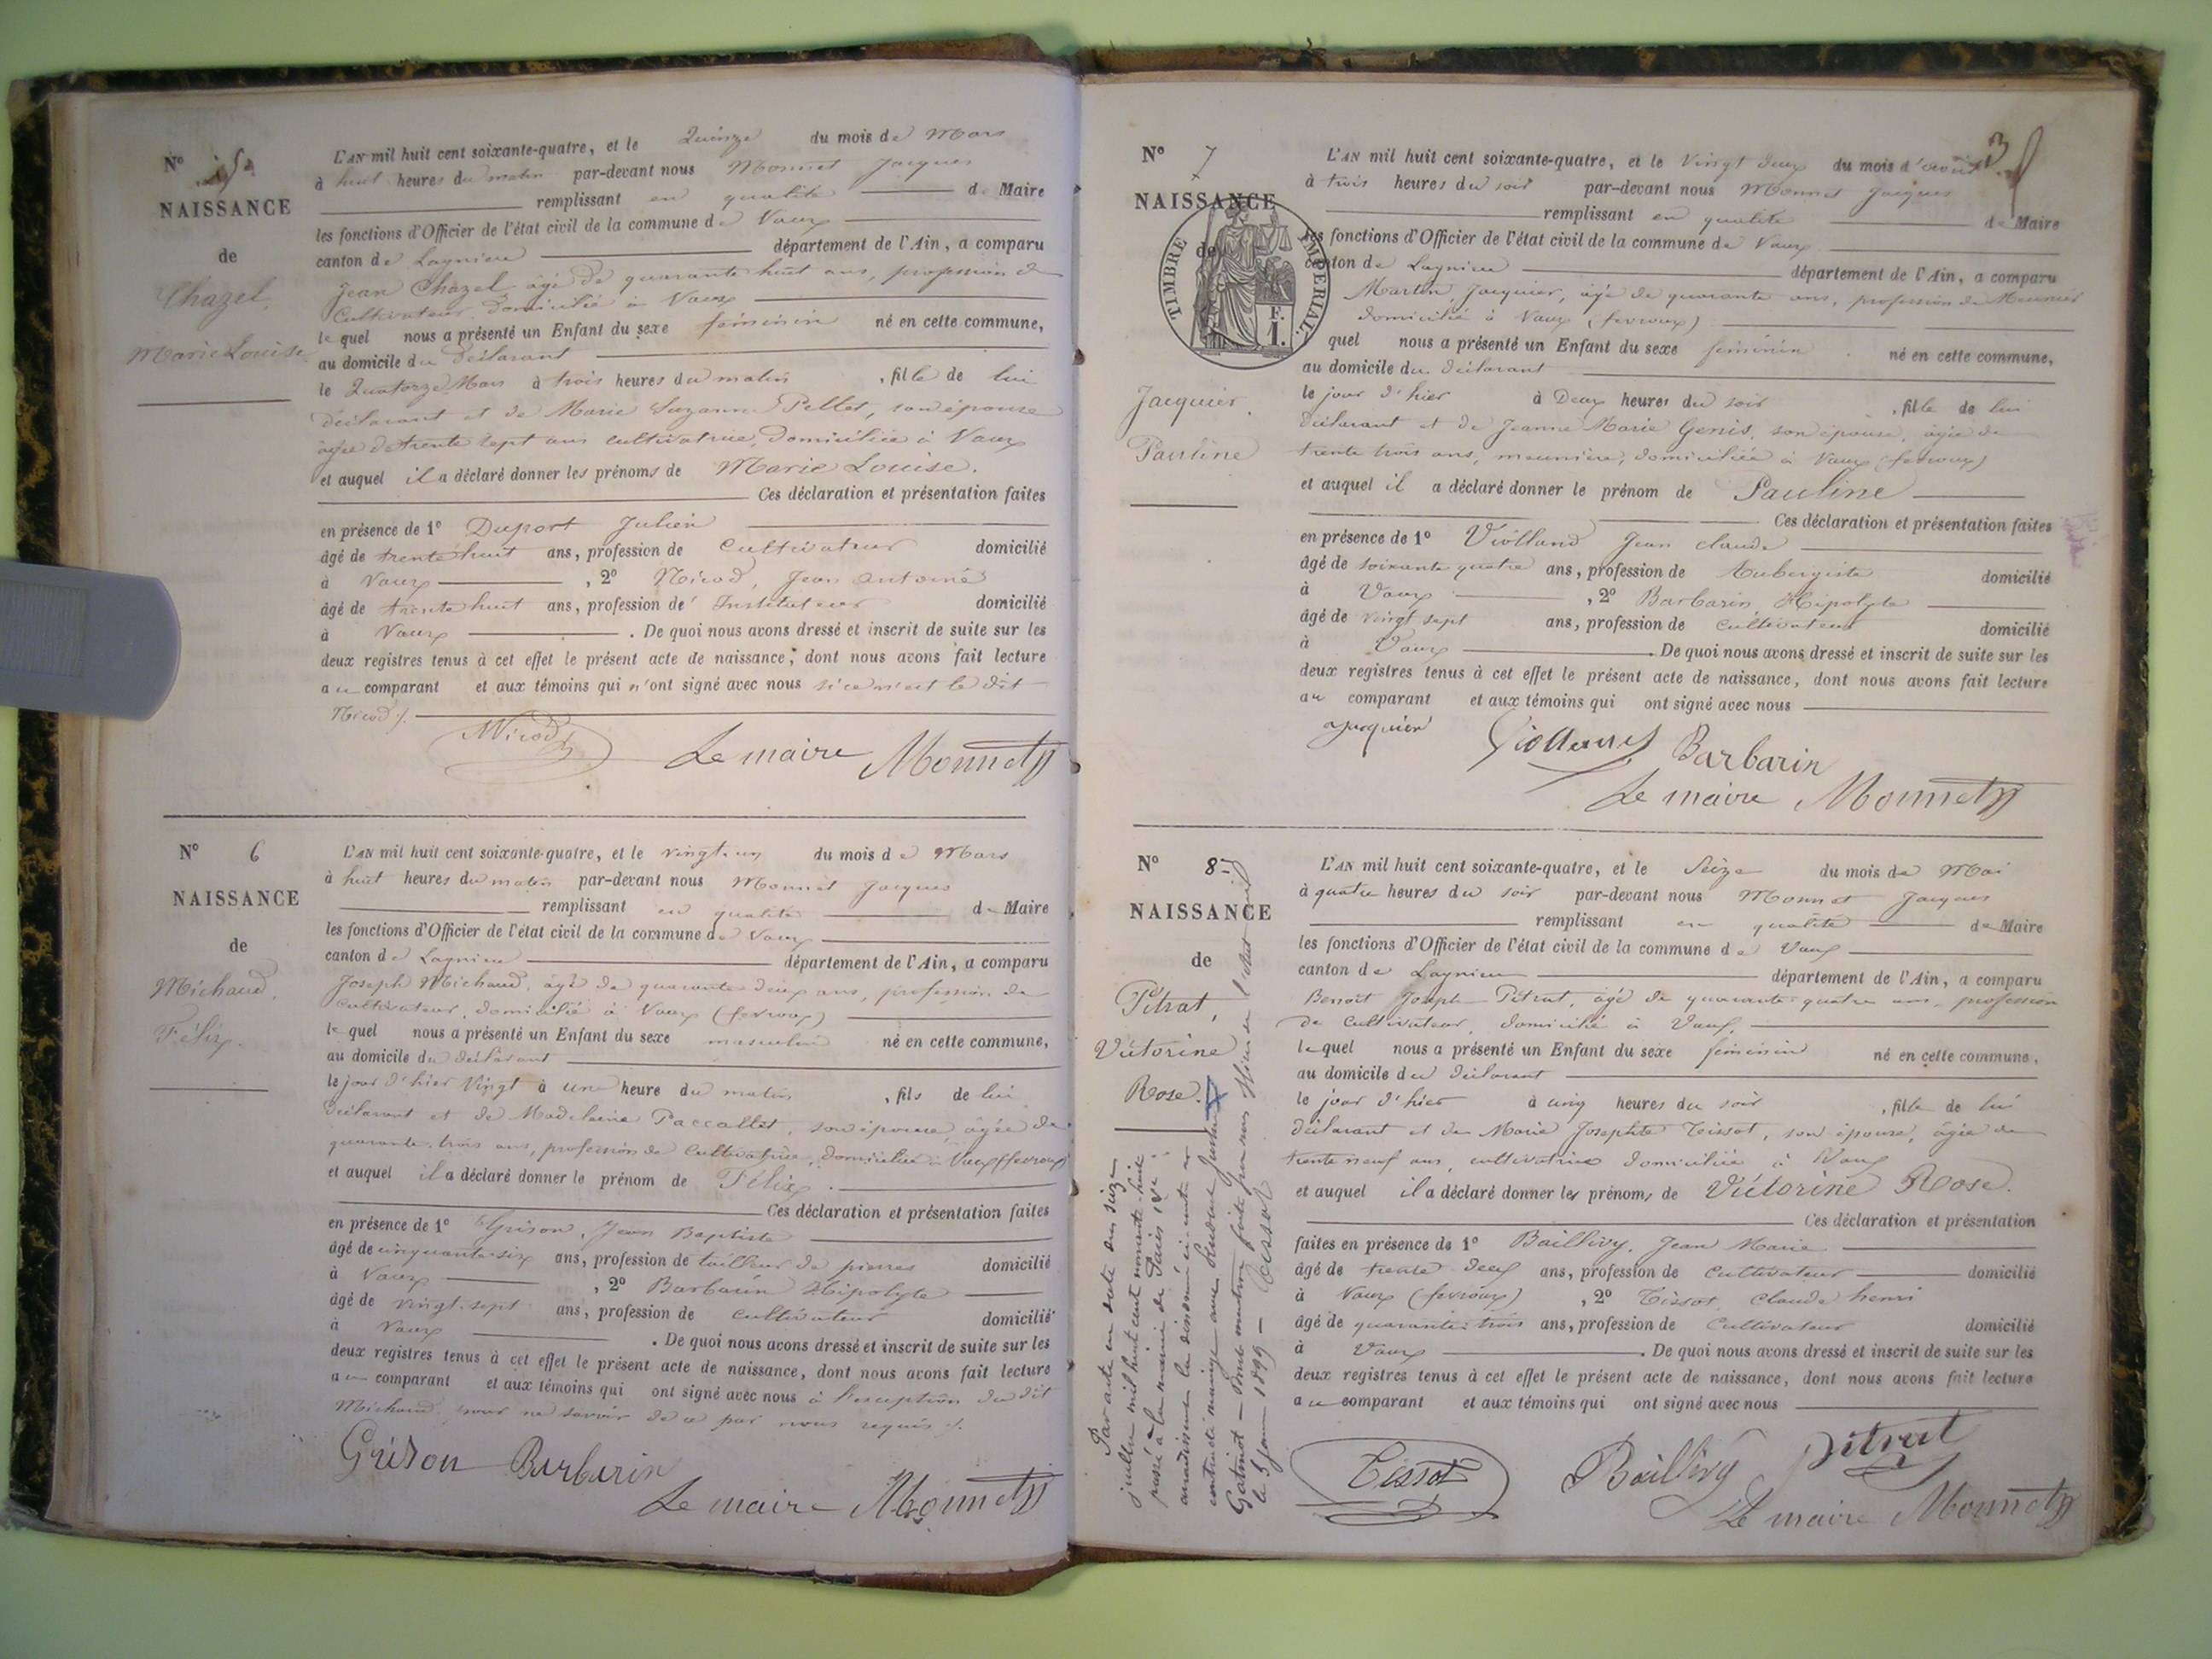 N° 5.
NAISSANCE
de
Chazel.
Marie Louise.
L'AN mil huit cent soixante-quatre, et le Quinze du mois de Mars
à huit heures du matin par-devant nous Monnet Jacques
remplissant en qualité de Maire
les fonctions d'Officier de l'état civil de la commune de Vaux
canton de Lagnieu département de l'Ain, a comparu
Jean Chazel âgé de quarante huit ans, profession de
Cultivateur, domicilié à Vaux
lequel nous a présenté un Enfant du sexe féminin né en cette commune,
au domicile du déclarant
le Quatorze Mars à trois heures du matin, fille de lui
déclarant et de Marie Suzanne Pellet, son épouse
âgée de trente sept ans cultivatrice, domiciliée à Vaux
et auquel il a déclaré donner les prénoms de Marie Louise.
Ces déclaration et présentation faites
en présence de 1° Duport Julien
âgé de trente huit ans, profession de Cultivateur domicilié
à Vaux, 2° Nicod, Jean Antoine
âgé de trente huit ans, profession de Instituteur domicilié
à Vaux. De quoi nous avons dressé et inscrit de suite sur les
deux registres tenus à cet effet le présent acte de naissance, dont nous avons fait lecture
au comparant et aux témoins qui n'ont signé avec nous si ce n'est le dit
Nicod ./.
Nicod
Le maire Monnet
N° 6
NAISSANCE
de
Michaud.
Félix.
L'AN mil huit cent soixante-quatre, et le vingt-un du mois de Mars
à huit heures du matin par-devant nous Monnet Jacques
remplissant en qualité de Maire
les fonctions d'Officier de l'état civil de la commune de Vaux
canton de Lagnieu département de l'Ain, a comparu
Joseph Michaud, âgé de quarante deux ans, profession de
cultivateur, domicilié à Vaux (fevroux)
lequel nous a présenté un Enfant du sexe masculin né en cette commune,
au domicile du déclarant
le jour d'hier Vingt à une heure du matin, fils de lui
déclarant et de Madelaine Paccallet, son épouse, âgée de
quarante-trois ans, profession de Cultivatrice, domiciliée à Vaux (fevroux)
et auquel il a déclaré donner le prénom de Félix.
Ces déclaration et présentation faites
en présence de 1° Grison, Jean Baptiste
âgé de cinquante-six ans, profession de tailleur de pierres domicilié
à Vaux, 2° Barbarin Hipolyte
âgé de vingt-sept ans, profession de cultivateur domicilié
à Vaux. De quoi nous avons dressé et inscrit de suite sur les
deux registres tenus à cet effet le présent acte de naissance, dont nous avons fait lecture
au comparant et aux témoins qui ont signé avec nous à l'exception du dit
Michaud pour ne savoir de ce par nous requis ./.
Grison Barbarin
Le maire Monnet
3
N° 7
NAISSANCE
de
TIMBRE IMPERIAL.
1 F.
Jacquier.
Pauline
L'AN mil huit cent soixante-quatre, et le Vingt deux du mois d'avril
à trois heures du soir par-devant nous Monnet Jacques
remplissant en qualité de Maire
les fonctions d'Officier de l'état civil de la commune de Vaux
canton de Lagnieu département de l'Ain, a comparu
Martin Jacquier, âgé de quarante ans, profession de Meunier
domicilié à Vaux (fevroux)
quel nous a présenté un Enfant du sexe féminin. né en cette commune,
au domicile du déclarant
le jour d'hier à Deux heures du soir, fille de lui
déclarant et de Jeanne Marie Genis, son épouse, âgée de
trente trois ans, meunière, domiciliée à Vaux (fevroux)
et auquel il a déclaré donner le prénom de Pauline
Ces déclaration et présentation faites
en présence de 1° Viölland Jean Claude
âgé de soixante quatre ans, profession de Aubergiste domicilié
à Vaux, 2° Barbarin, Hipolyte
âgé de vingt sept ans, profession de Cultivateur domicilié
à Vaux. De quoi nous avons dressé et inscrit de suite sur les
deux registres tenus à cet effet le présent acte de naissance, dont nous avons fait lecture
au comparant et aux témoins qui ont signé avec nous
Jacquier Violland Barbarin
Le maire Monnet
N° 8
NAISSANCE
de
Pitrat,
Victorine
Rose.
L'AN mil huit cent soixante-quatre, et le Seize du mois de Mai
à quatre heures du soir par-devant nous Monnet Jacques
remplissant en qualité de Maire
les fonctions d'Officier de l'état civil de la commune de Vaux
canton de Lagnieu département de l'Ain, a comparu
Benoît Joseph Pitrat, âgé de quarante-quatre ans, profession
de Cultivateur, domicilié à Vaux,
lequel nous a présenté un Enfant du sexe féminin né en cette commune,
au domicile du déclarant
le jour d'hier à cinq heures du soir, fille de lui
déclarant et de Marie Josephte Tissot, son épouse, âgée de
trente neuf ans, cultivatrice domiciliée à Vaux
et auquel il a déclaré donner les prénoms de Victorine Rose.
Ces déclaration et présentation
faites en présence de 1° Baillivy, Jean Marie
âgé de trente deux ans, profession de Cultivateur domicilié
à Vaux (fevroux), 2° Tissot, Claude henri
âgé de quarante-trois ans, profession de Cultivateur domicilié
à Vaux. De quoi nous avons dressé et inscrit de suite sur les
deux registres tenus à cet effet le présent acte de naissance, dont nous avons fait lecture
au comparant et aux témoins qui ont signé avec nous
Tissot Baillivy Pitrat
Le maire Monnet
Par acte en date du seize
juillet mil huit cent nonante-huit
passé à la mairie de Paris
arrondissement la dénommée ci-contre a
contracté mariage avec
Gatinot — Dont mention faite par nous officier de l'état civil
le 5 1899 — Tissot